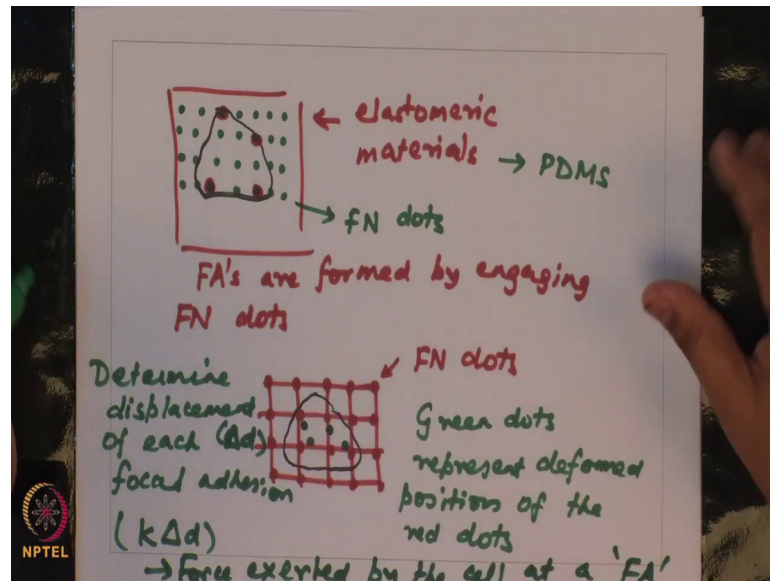 ← elastomeric
materials → PDMS
→ FN dots
FA's are formed by engaging
FN dots
FN dots
Determine
displacement
of each (Δd)
focal adhesion
(KΔd)
Green dots
represent deformed
positions of the
red dots
→ Force exerted by the cell at a 'FA'
NPTEL